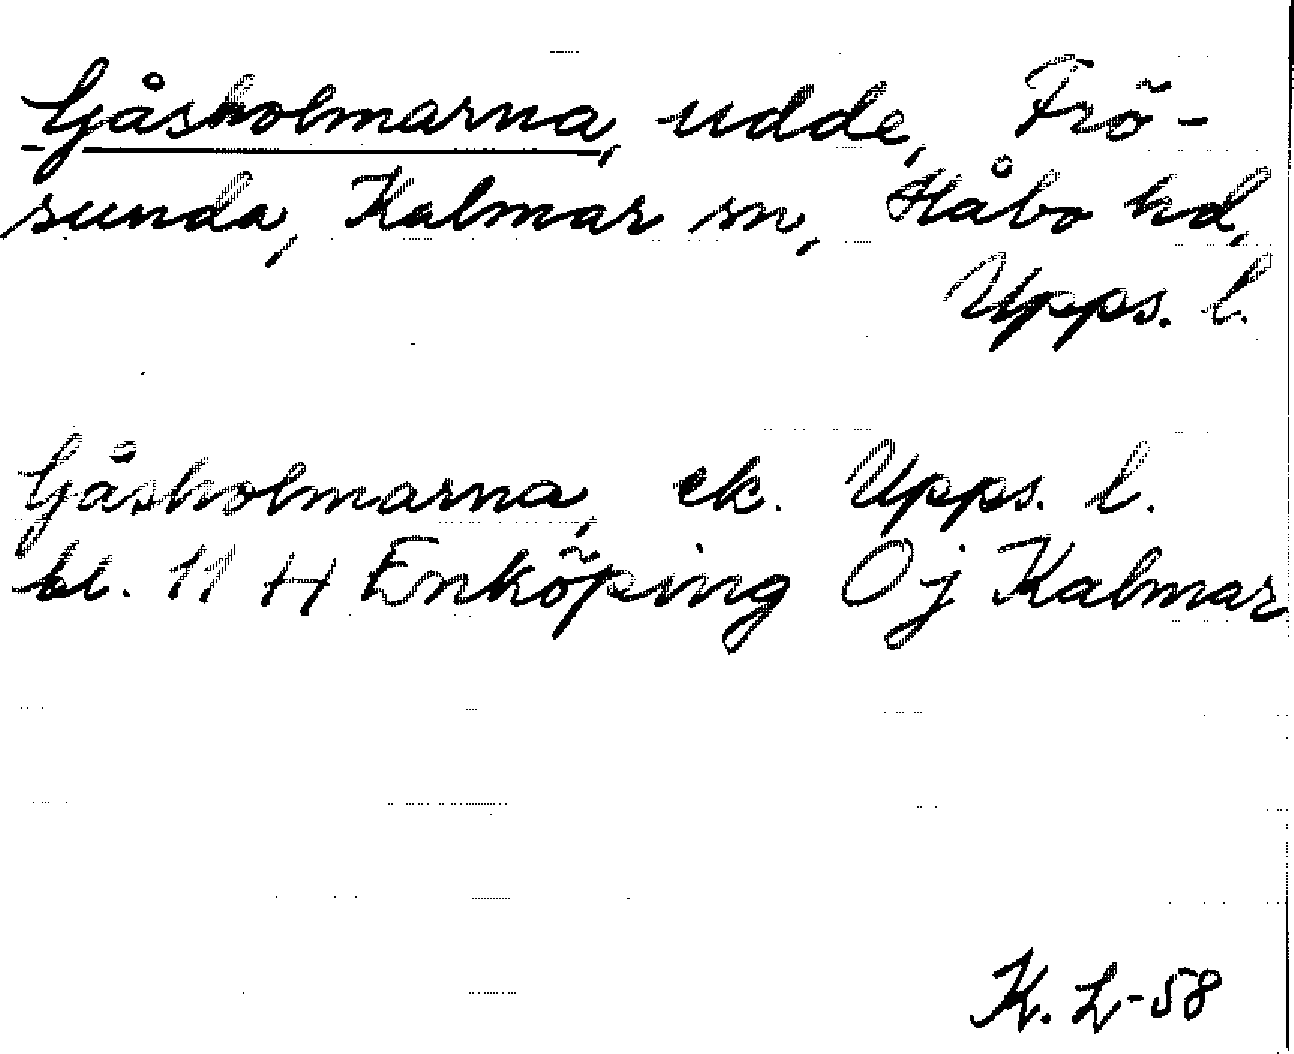 Gåsholmarna, udde, Frö-
sunda, Kalmar sn, Håbo hd,
Upps. l.
Gåsholmarna, ek. Upps. l.
bl. 11 H Enköping Oj Kalmar
K. L-58